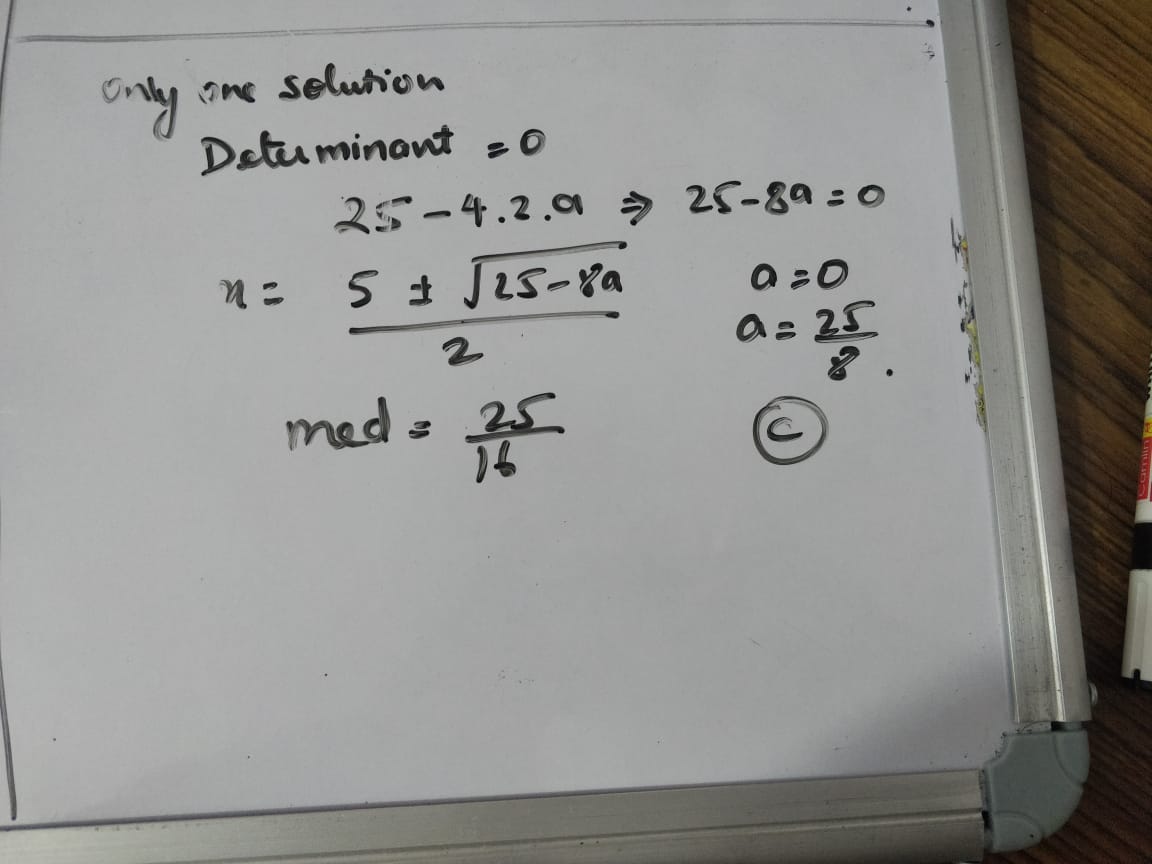 Only one solution
Determinant = 0
25 - 4.2.a ⇒ 25-8a = 0
x = 5 ± √25-8a / 2
a = 0
a = 25/8.
med = 25/16
C
camlin